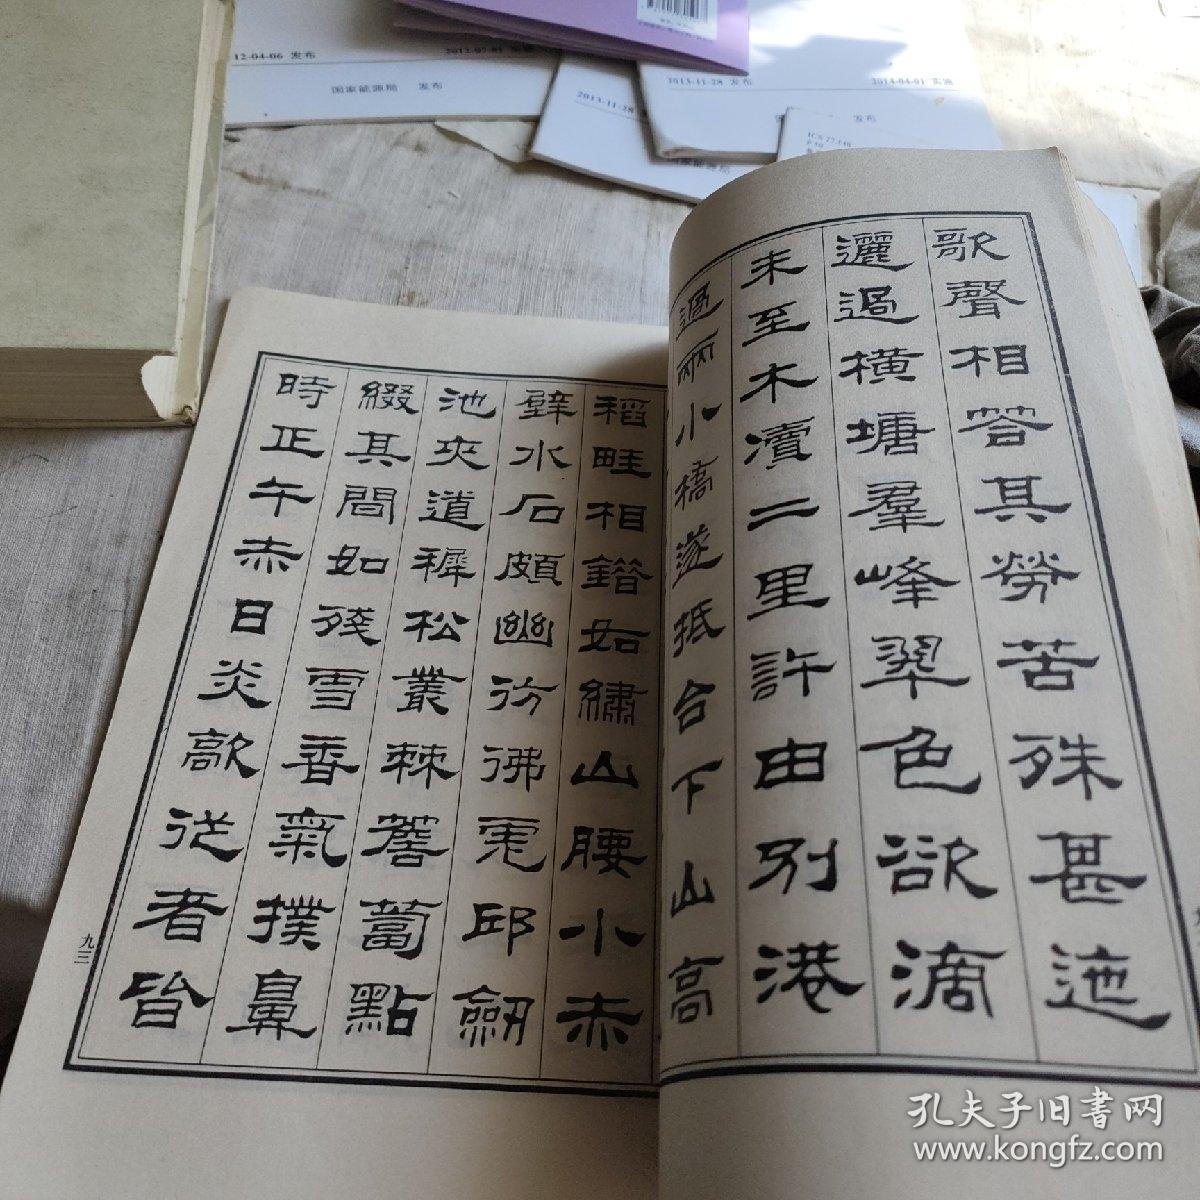 12-04-06 发布
2012-07-01 实施
国家能源局 发布
2013-11-28
2013-11-28 发布
2014-04-01 实施
发布
国家能源局
ICS 27.140
歌聲相答其勞苦殊甚迤
邐過橫塘羣峰翠色欲滴
未至木瀆二里許由別港
過兩小橋遂抵台下山高
稻畦相錯如繡山腰小赤
壁水石頗幽彷彿虎邱劒
池夾道穉松叢棘薝蔔點
綴其間如殘雪香氣撲鼻
時正午赤日炎歊從者皆
九三
孔夫子旧書网
www.kongfz.com